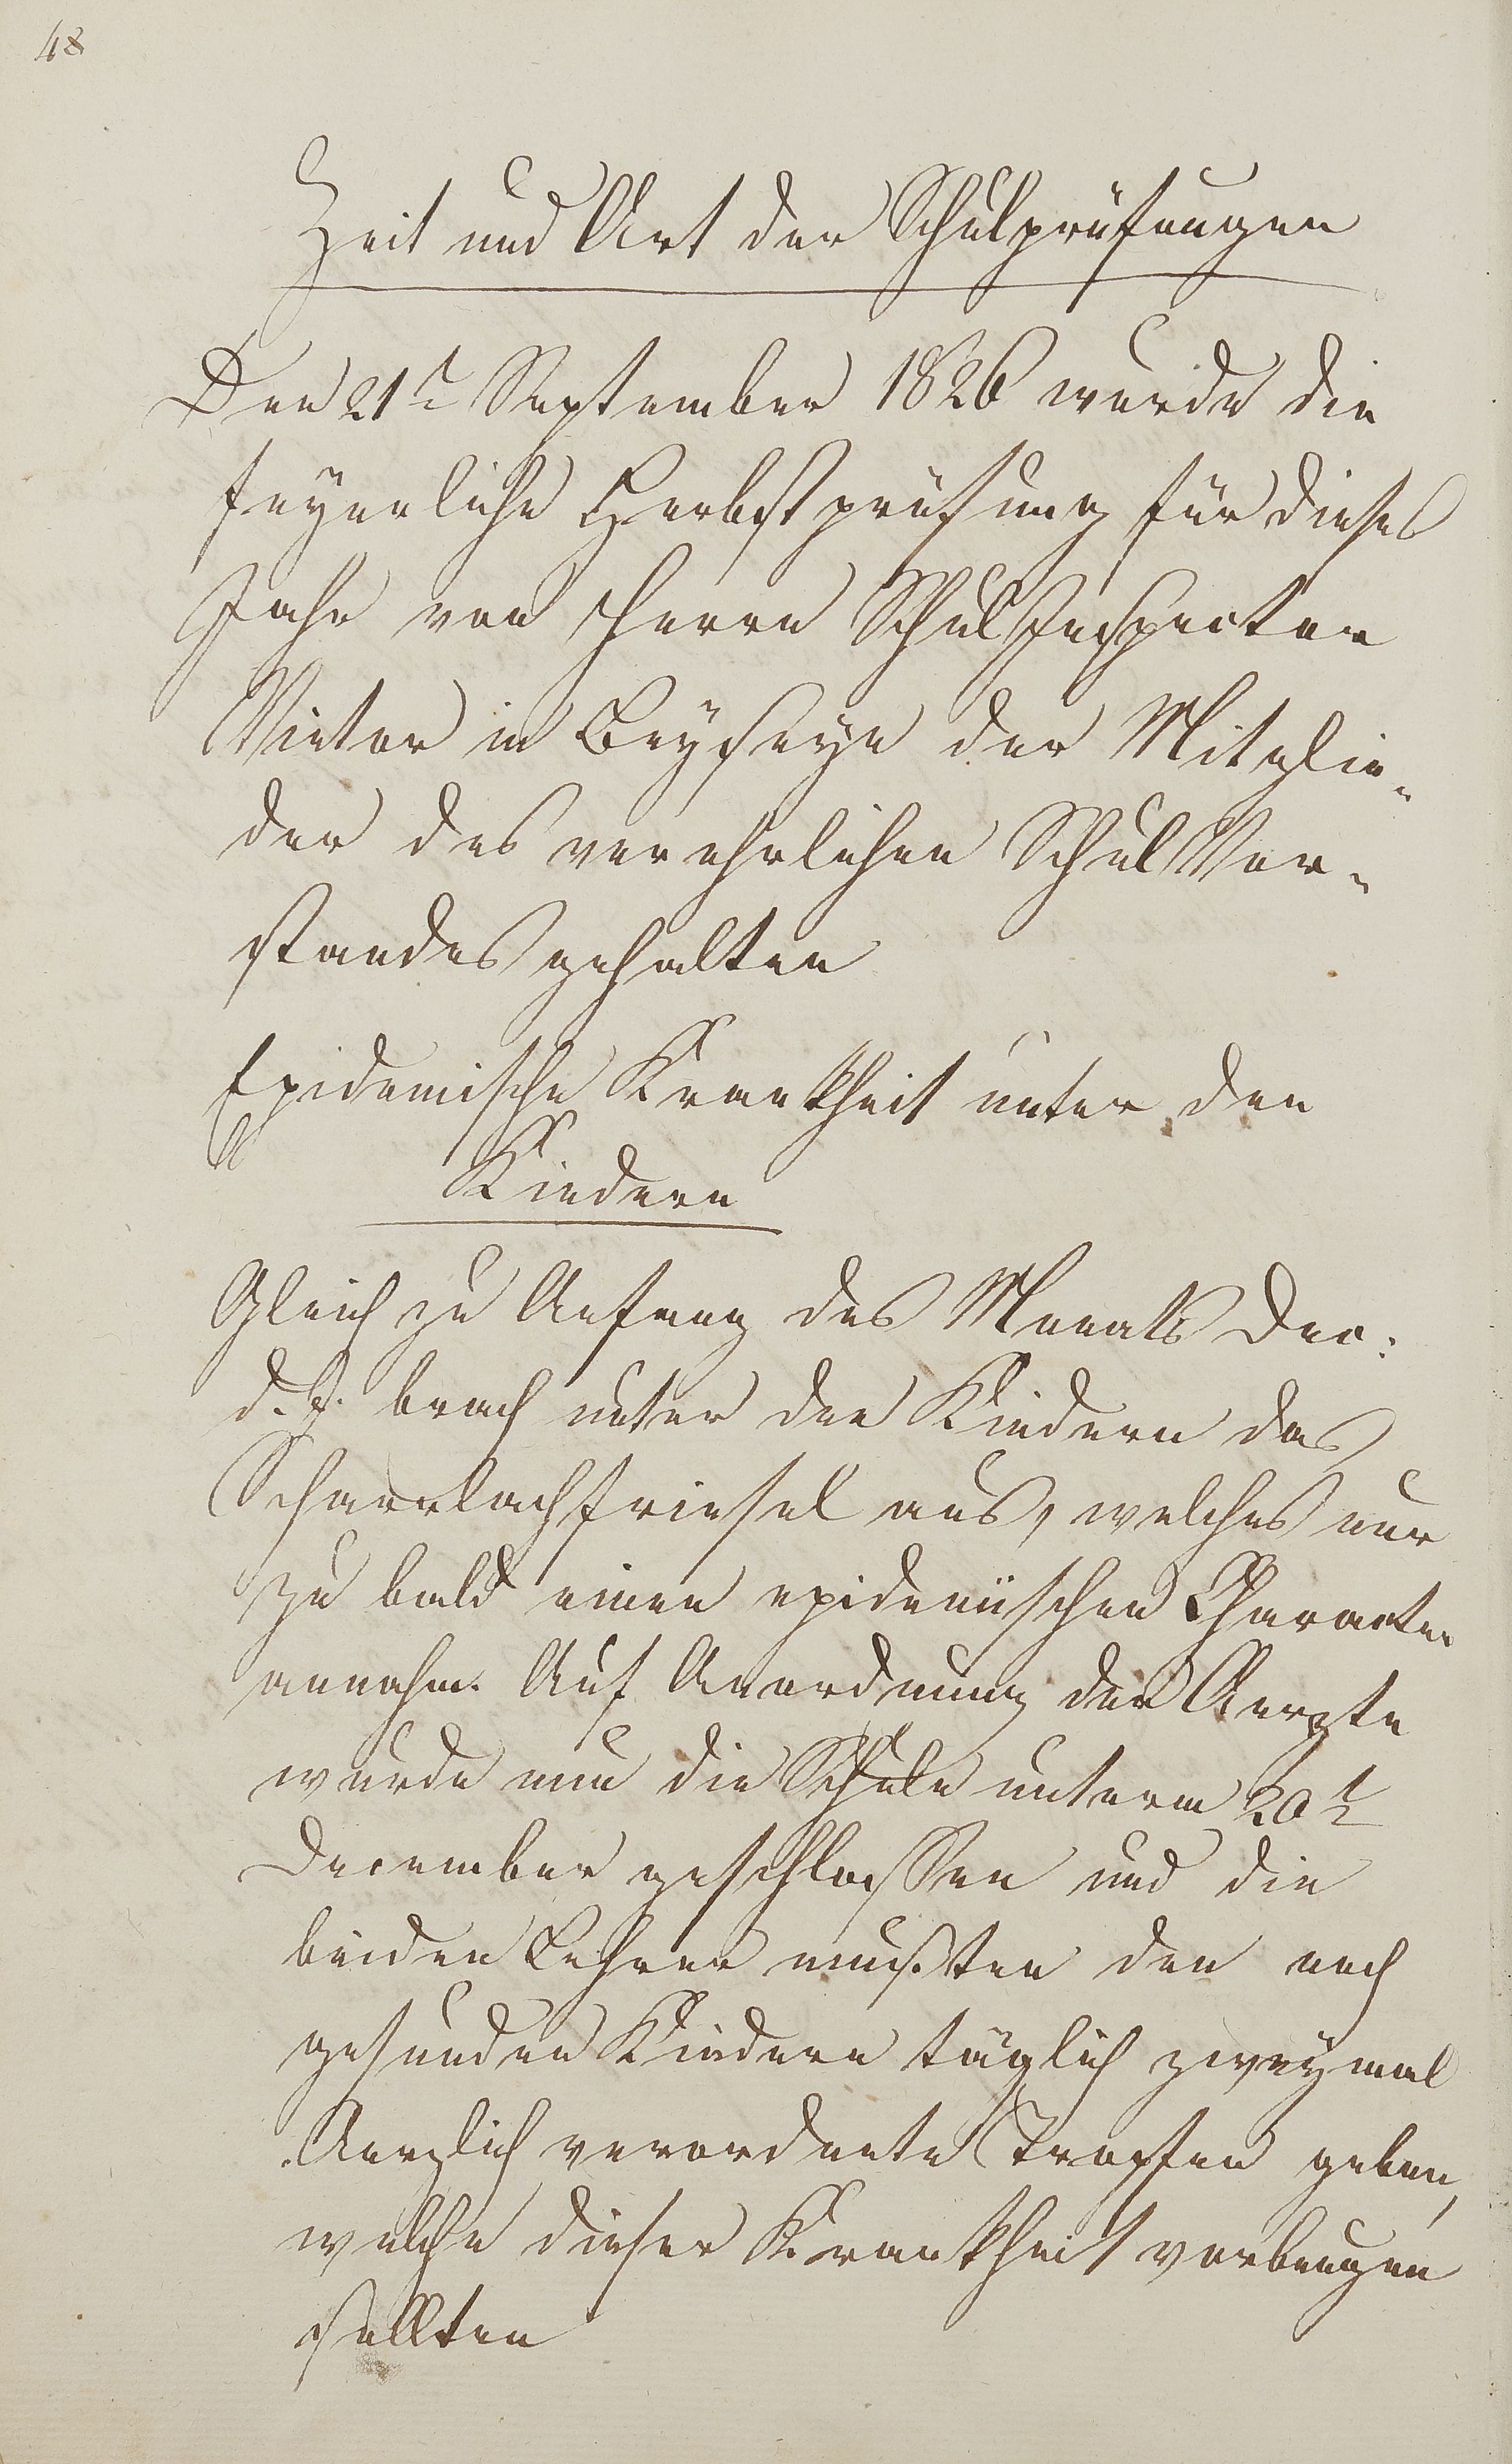 48
Zeit und Art der Schulprüfungen
Den 21t September 1826 wurde die
feyerliche Herbstprüfung für dieses
Jahr von Herrn SchulInspector
Vietor in Beyseyn der Mitglie-
der des verehrlichen SchulVor-
standes gehalten
Epidemische Krankheit unter den
Kindern
Gleich zu Anfang des Monats Dec:
d. J. brach unter den Kindern das
Scharlachfriesel aus, welches nur
zu bald einen epidemischen Character
annahm. Auf Anordnung der Aerzte
wurde nun die Schule unterm 20t
December geschlossen und die
beiden Lehrer mußten den noch
gesunden Kindern täglich zweymal
Aerzlich verordnete Tropfen geben,
welche dieser Krankheit vorbeugen
sollten